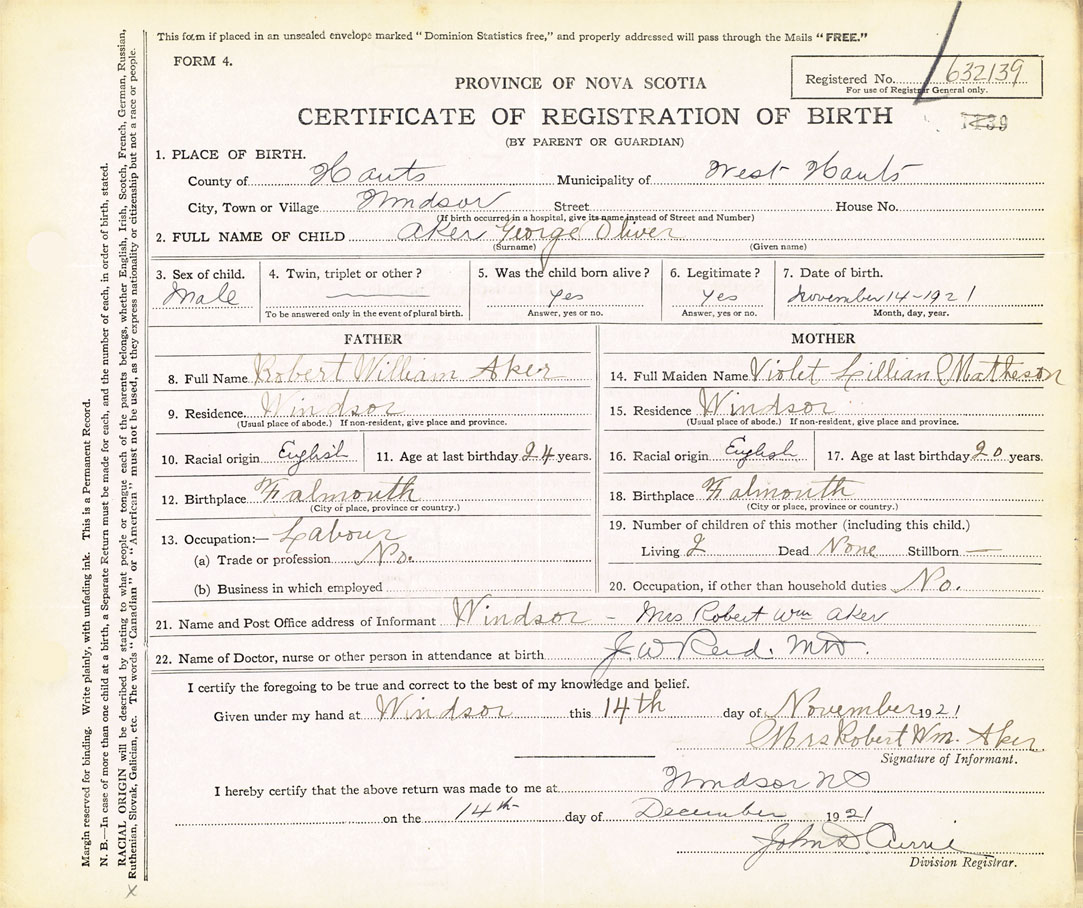 This form if placed in an unsealed envelope marked "Dominion Statistics free," and properly addressed will pass through the Mails "FREE."
FORM 4.
Registered No. 632139
For use of Registrar General only.
PROVINCE OF NOVA SCOTIA
CERTIFICATE OF REGISTRATION OF BIRTH
(BY PARENT OR GUARDIAN)
1. PLACE OF BIRTH.
County of Hants Municipality of West Hants
City, Town or Village Windsor Street House No.
(If birth occurred in a hospital, give its name instead of Street and Number)
2. FULL NAME OF CHILD Aker George Oliver
(Surname) (Given name)
3. Sex of child. 4. Twin, triplet or other? 5. Was the child born alive? 6. Legitimate? 7. Date of birth.
Male — yes yes November 14-1921
To be answered only in the event of plural birth. Answer, yes or no. Answer, yes or no. Month, day, year.
FATHER
8. Full Name Robert William Aker
9. Residence Windsor
(Usual place of abode.) If non-resident, give place and province.
10. Racial origin English 11. Age at last birthday 24 years.
12. Birthplace Falmouth
(City or place, province or country.)
13. Occupation:— Labour
(a) Trade or profession No.
(b) Business in which employed
MOTHER
14. Full Maiden Name Violet Lillian Matheson
15. Residence Windsor
(Usual place of abode.) If non-resident, give place and province.
16. Racial origin English 17. Age at last birthday 20 years.
18. Birthplace Falmouth
(City or place, province or country.)
19. Number of children of this mother (including this child.)
Living 2 Dead None Stillborn —
20. Occupation, if other than household duties No.
21. Name and Post Office address of Informant Windsor - Mrs Robert Wm Aker
22. Name of Doctor, nurse or other person in attendance at birth J. W. Reid. MD.
I certify the foregoing to be true and correct to the best of my knowledge and belief.
Given under my hand at Windsor this 14th day of November 1921
Mrs Robert Wm. Aker
Signature of Informant.
I hereby certify that the above return was made to me at Windsor NS
on the 14th day of December 1921
John D Currie
Division Registrar.
Margin reserved for binding. Write plainly, with unfading ink. This is a Permanent Record.
N. B.—In case of more than one child at a birth, a Separate Return must be made for each, and the number of each, in order of birth, stated.
RACIAL ORIGIN will be described by stating to what people or tongue each of the parents belongs, whether English, Irish, Scotch, French, German, Russian,
Ruthenian, Slovak, Galician, etc. The words "Canadian" or "American" must not be used, as they express nationality or citizenship but not a race or people.
X